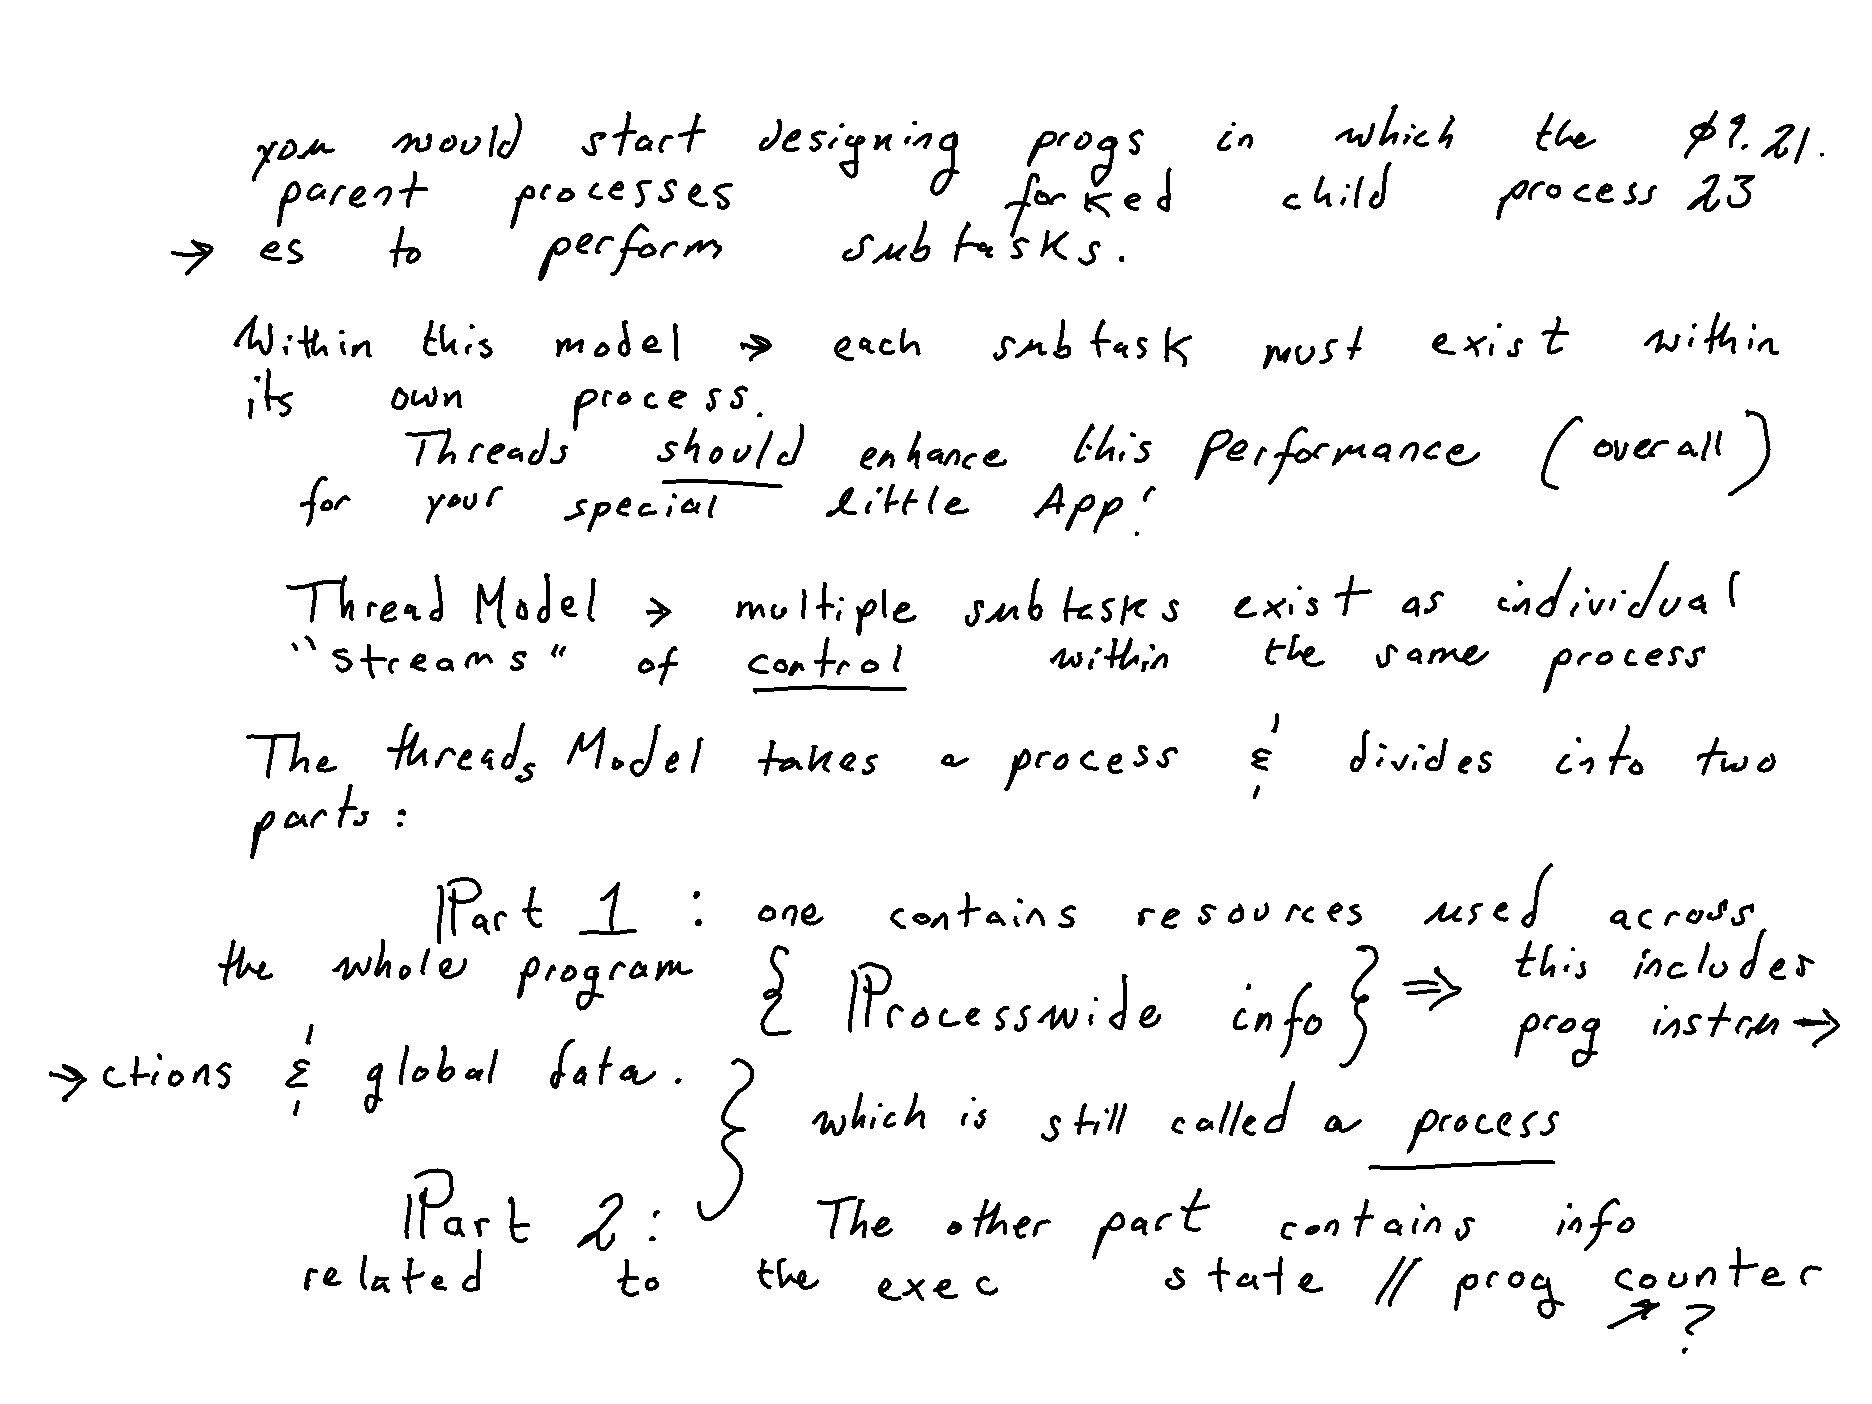 you would start designing progs in which the 09.21.
parent processes forked child process 23
→ es to perform subtasks.
Within this model → each subtask must exist within
its own process.
Threads should enhance this performance (overall)
for your special little App!
Thread Model → multiple subtasks exist as individual
"streams" of control within the same process
The threads Model takes a process & divides into two
parts:
Part 1 : one contains resources used across
the whole program { Processwide info } ⇒ this includes
prog instru →
→ ctions & global data. }
which is still called a process
Part 2: The other part contains info
related to the exec state // prog counter
↗ ?